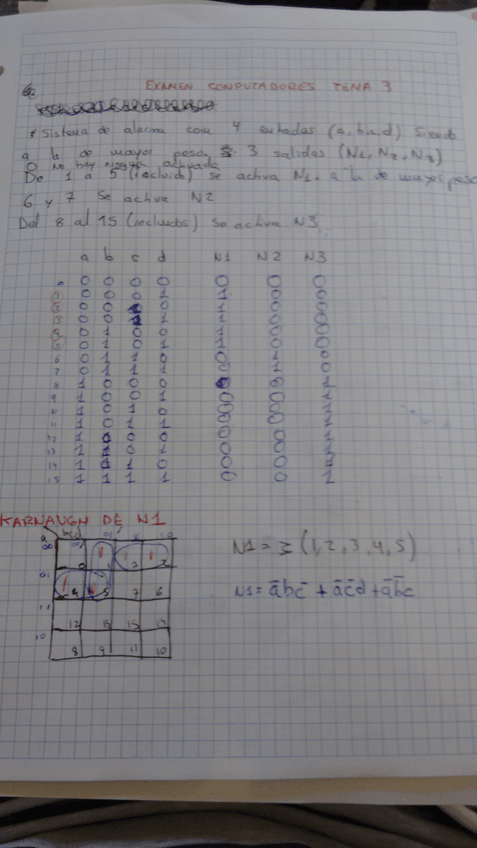 EXAMEN COMPUTADORES TEMA 3
* Sistema de alarma con 4 entradas (a,b,c,d) Siendo
a la de mayor peso, 3 salidas (N1, N2, N3)
0 no hay ninguna activada
De 1 a 5 (incluido) se activa N1. a la de mayor peso
6 y 7 Se activa N2
Del 8 al 15 (incluidos) Se activa N3
a b c d N1 N2 N3
0 0 0 0 0 0 0 0
1 0 0 0 1 1 0 0
2 0 0 1 0 1 0 0
3 0 0 1 1 1 0 0
4 0 1 0 0 1 0 0
5 0 1 0 1 1 0 0
6 0 1 1 0 0 1 0
7 0 1 1 1 0 1 0
8 1 0 0 0 0 0 1
9 1 0 0 1 0 0 1
10 1 0 1 0 0 0 1
11 1 0 1 1 0 0 1
12 1 1 0 0 0 0 1
13 1 1 0 1 0 0 1
14 1 1 1 0 0 0 1
15 1 1 1 1 0 0 1
KARNAUGN DE N1
00 01 11 10
00 0 1 1 1 3 1 2
01 1 4 1 5 7 6
11 12 13 15 14
10 8 9 11 10
N1 = Σ (1,2,3,4,5)
N1 = a̅bc̅ + a̅c̅d + a̅b̅c